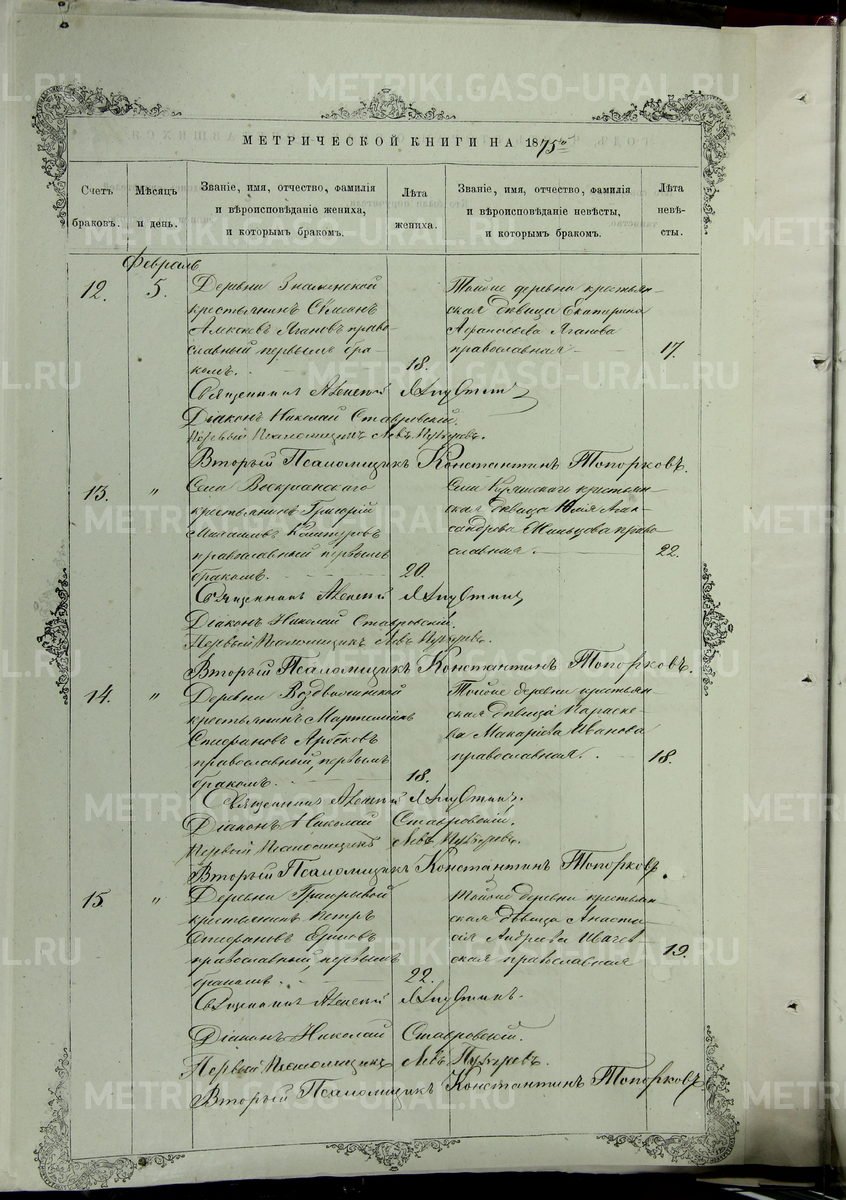 МЕТРИЧЕСКОЙ КНИГИ НА 1875й
Счетъ браковъ.
Мѣсяцъ и день.
Званіе, имя, отчество, фамилія и вѣроисповѣданіе жениха, и которымъ бракомъ.
Лѣта жениха.
Званіе, имя, отчество, фамилія и вѣроисповѣданіе невѣсты, и которымъ бракомъ.
Лѣта невѣсты.
Февраль
12. 5.
Деревни Знаменской
крестьянинъ Симеонъ
Алексѣевъ право-
славный первымъ бра-
комъ. 18.
Тойже деревни крестьян-
ская дѣвица Екатерина
Аѳанасьева
православная 17.
Священникъ Алексей
Діаконъ Николай Ставровскій.
Первый Псаломщикъ Левъ
Второй Псаломщикъ Константинъ Топорковъ.
13. "
Села Воскресенскаго
крестьянинъ Григорій
православный первымъ
бракомъ. 20.
Села крестьян-
ская дѣвица Юлія Алек-
сандрова право-
славная. 22.
Священникъ Алексей
Діаконъ Николай Ставровскій.
Первый Псаломщикъ Левъ
Второй Псаломщикъ Константинъ Топорковъ.
14. "
Деревни Воздвиженской
крестьянинъ
Стефановъ
православный, первымъ
бракомъ. 18.
Тойже деревни крестьян-
ская дѣвица Параске-
ва Макарова Иванова
православная. 18.
Священникъ Алексей
Діаконъ Николай Ставровскій.
Первый Псаломщикъ Левъ
Второй Псаломщикъ Константинъ Топорковъ.
15. "
Деревни Григорьевой
крестьянинъ Петръ
Стефановъ Ершовъ
православный, первымъ
бракомъ. 22.
Тойже деревни крестьян-
ская дѣвица Анаста-
сія Андреева
православная 19.
Священникъ Алексей
Діаконъ Николай Ставровскій.
Первый Псаломщикъ Левъ
Второй Псаломщикъ Константинъ Топорковъ
METRIKI.GASO-URAL.RU